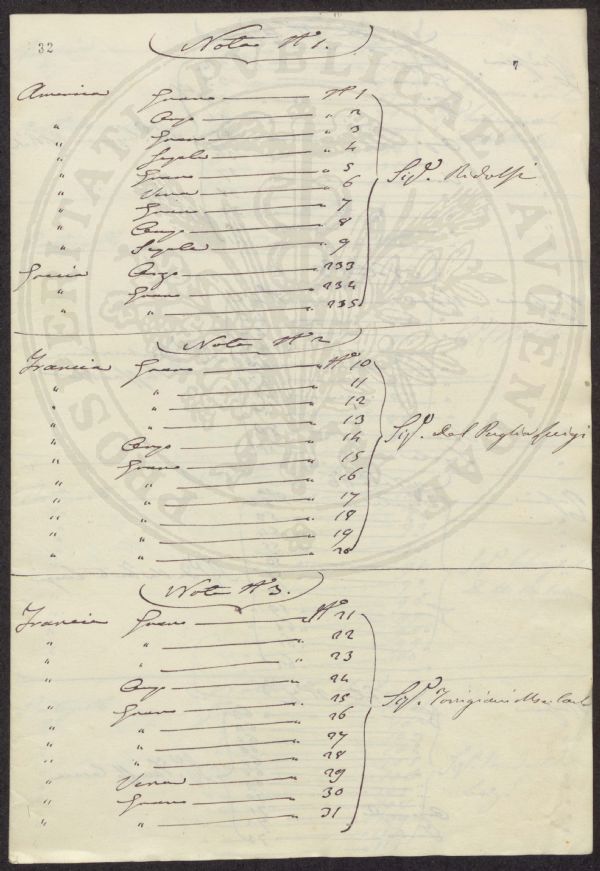 32
Nota Nº 1.
7
America Grano Nº 1
" Orzo " 2
" Grano " 3
" Segala " 4
" Grano " 5
" Vena " 6
" Grano " 7
" Orzo " 8
" Segala " 9
Sigr. Ridolfi
Grecia Orzo " 233
" Grano " 234
" " " 235
Nota Nº 2
Francia Grano Nº 10
" " " 11
" " " 12
" " " 13
" Orzo " 14
" Grano " 15
" " " 16
" " " 17
" " " 18
" " " 19
" " " 20
Sigr. del Puglia Luigi
Nota Nº 3.
Francia Grano Nº 21
" " " 22
" " " 23
" Orzo " 24
" Grano " 25
" " " 26
" " " 27
" " " 28
" Vena " 29
" Grano " 30
" " " 31
Sigr. Torrigiani
PROSPERITATI PVBLICAE AVGENDAE